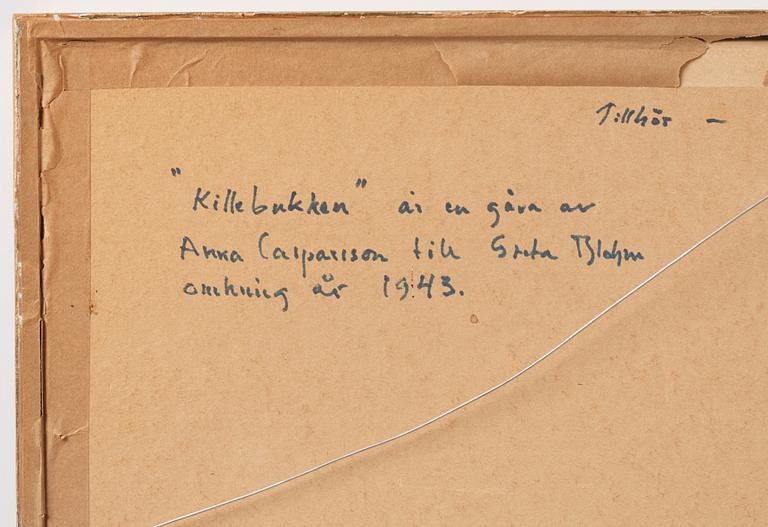 Tillhör –
"Killebukken" är en gåva av
Anna Casparsson till Greta Blohm
omkring år 1943.